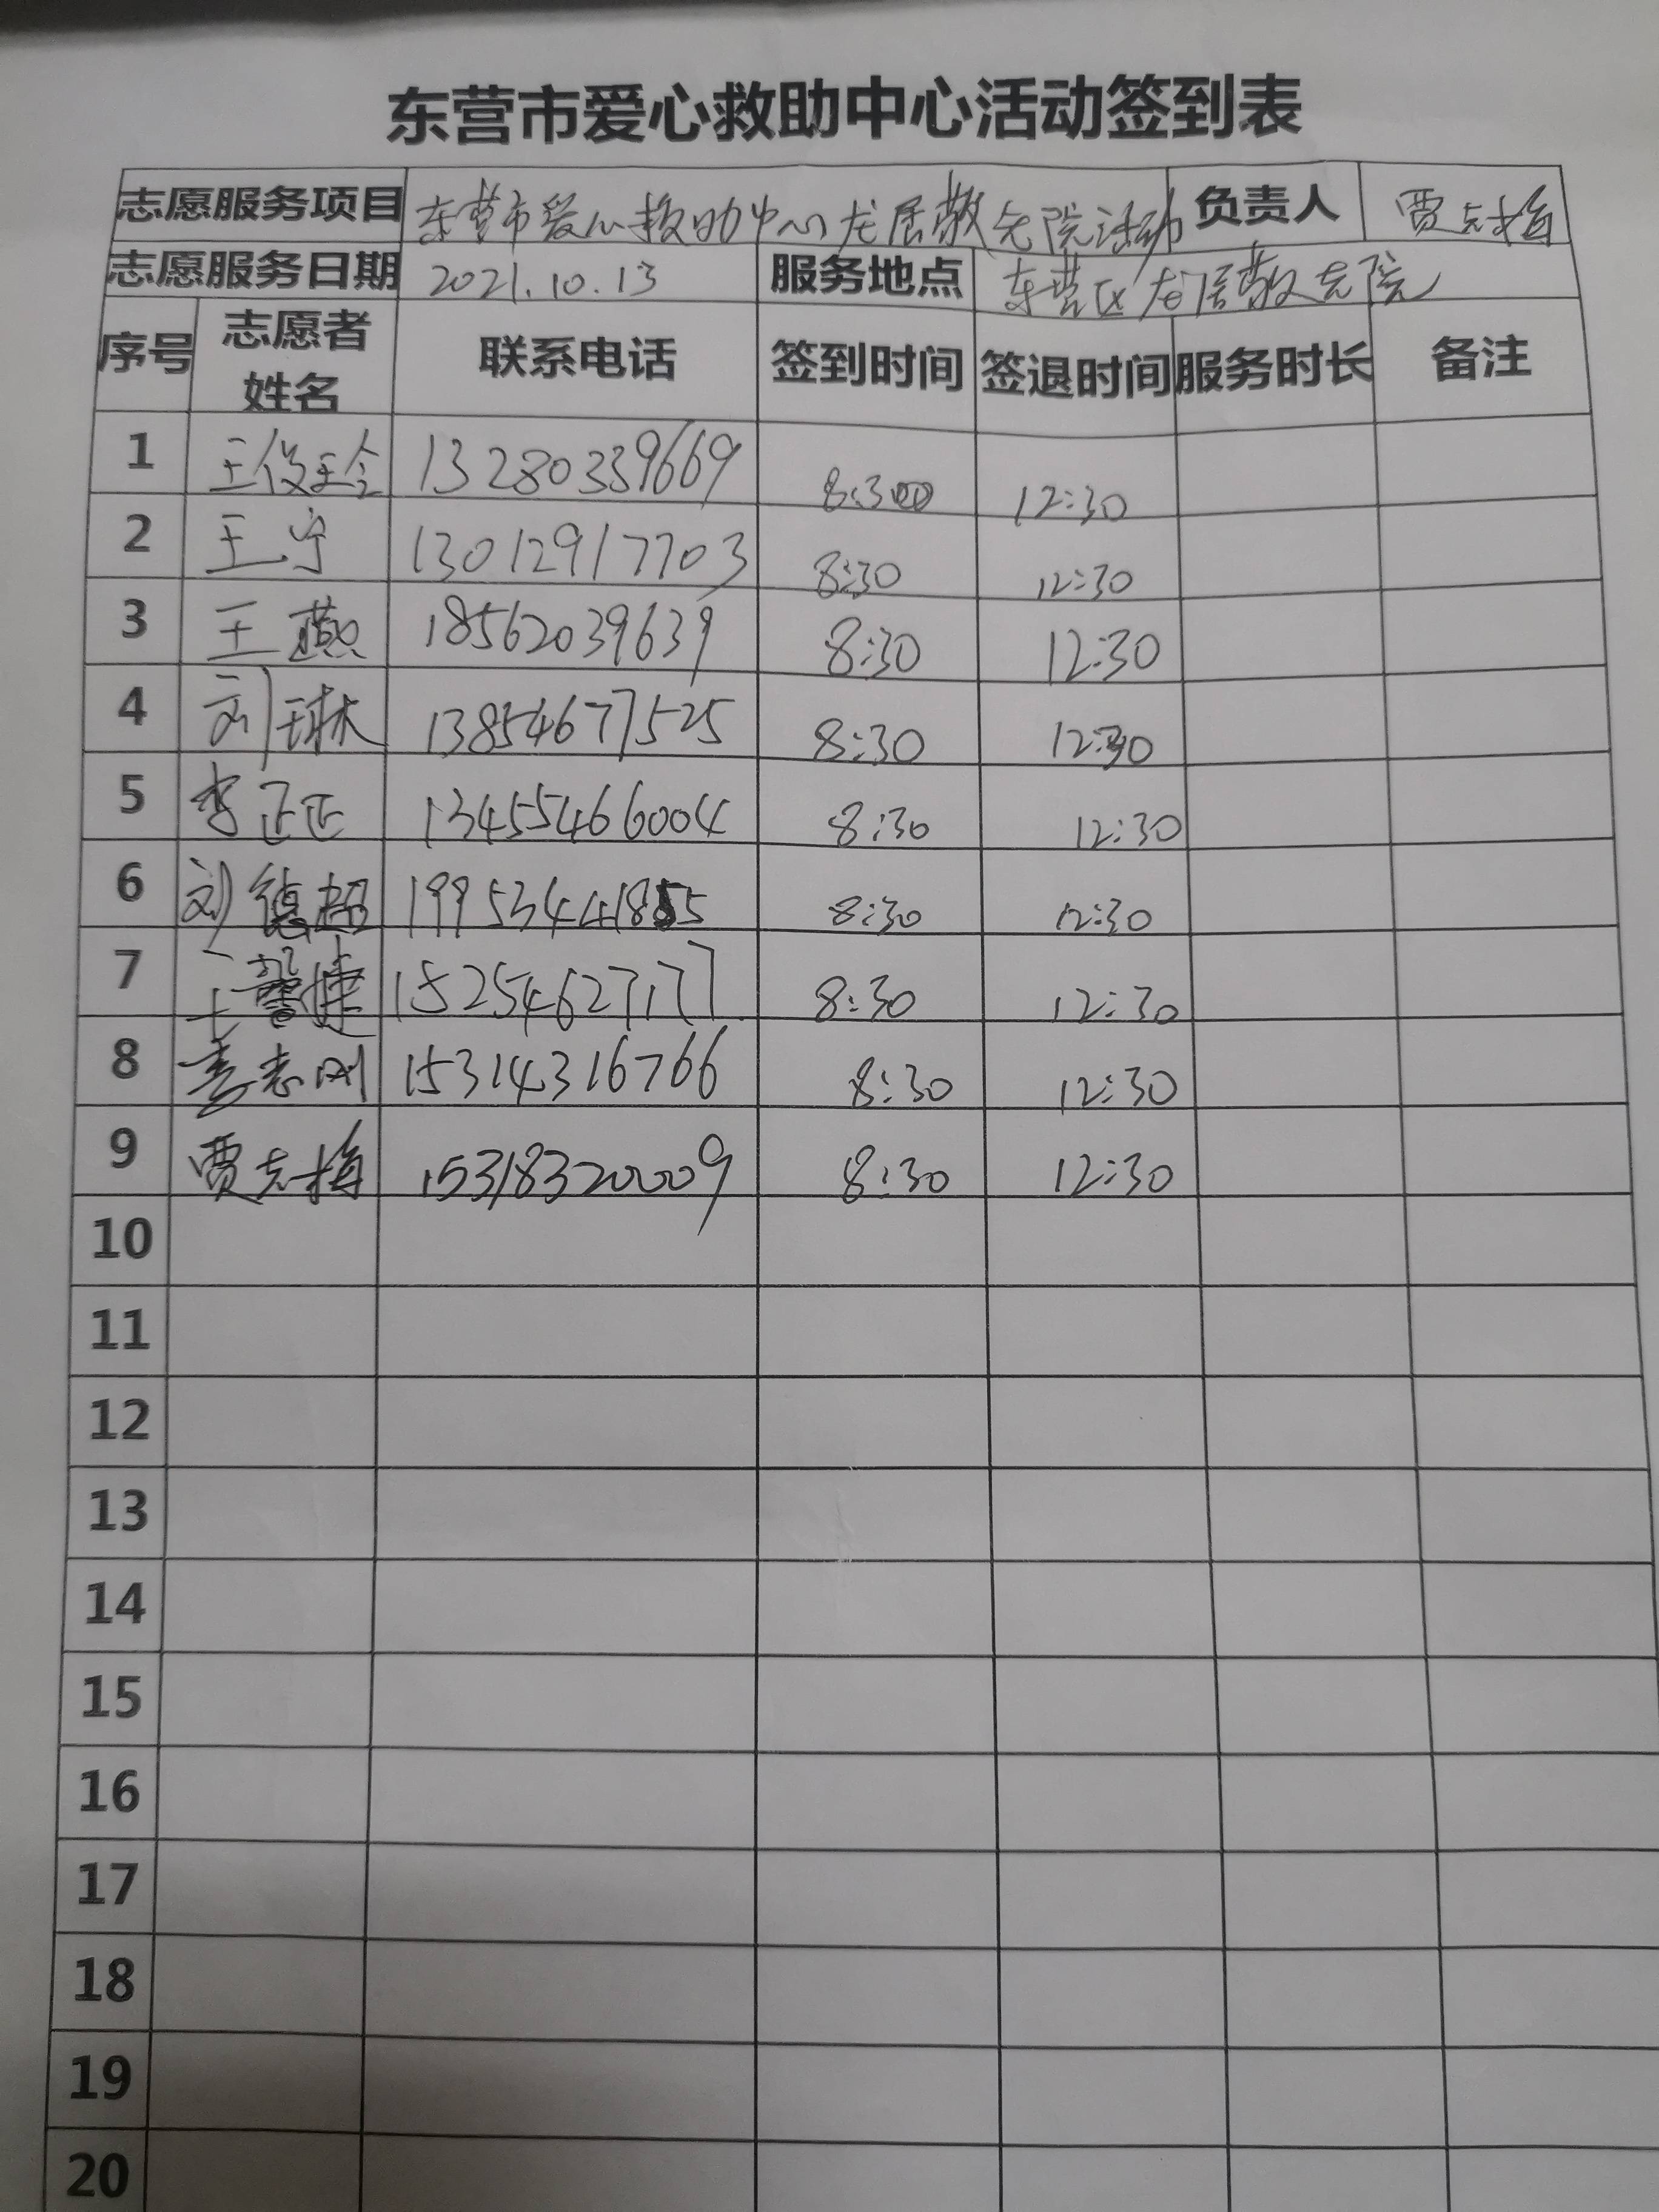 东营市爱心救助中心活动签到表
志愿服务项目 东营市爱心救助中心龙居敬老院活动 负责人 贾志梅
志愿服务日期 2021.10.13 服务地点 东营区龙居敬老院
序号 志愿者姓名 联系电话 签到时间 签退时间 服务时长 备注
1 王俊玲 13280339669 8:30 12:30
2 王宁 13012917703 8:30 12:30
3 王燕 18562039639 8:30 12:30
4 刘琳 13854677525 8:30 12:30
5 李正正 13455466004 8:30 12:30
6 刘德超 19953441855 8:30 12:30
7 15254627177 8:30 12:30
8 志刚 15314316766 8:30 12:30
9 贾志梅 15318320009 8:30 12:30
10
11
12
13
14
15
16
17
18
19
20